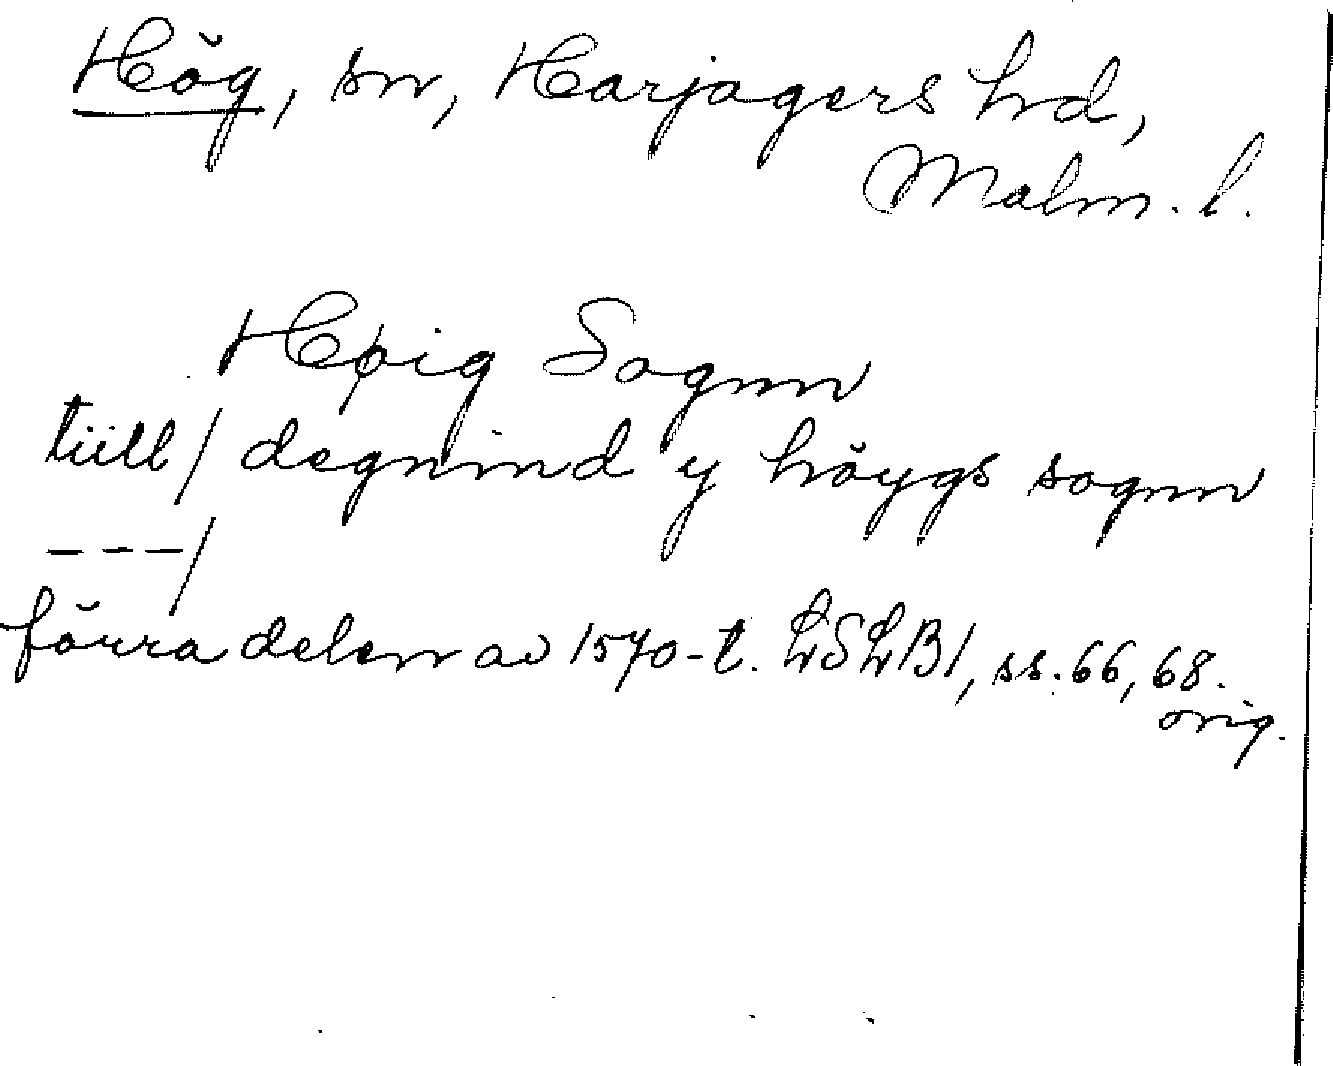 Hög, sn, Harjagers hd,
Malm. l.
Høig Sognn
tiill / degnind y höygs sognn
--- /
förra delen av 1570-t. LSLB1, ss. 66, 68.
orig.